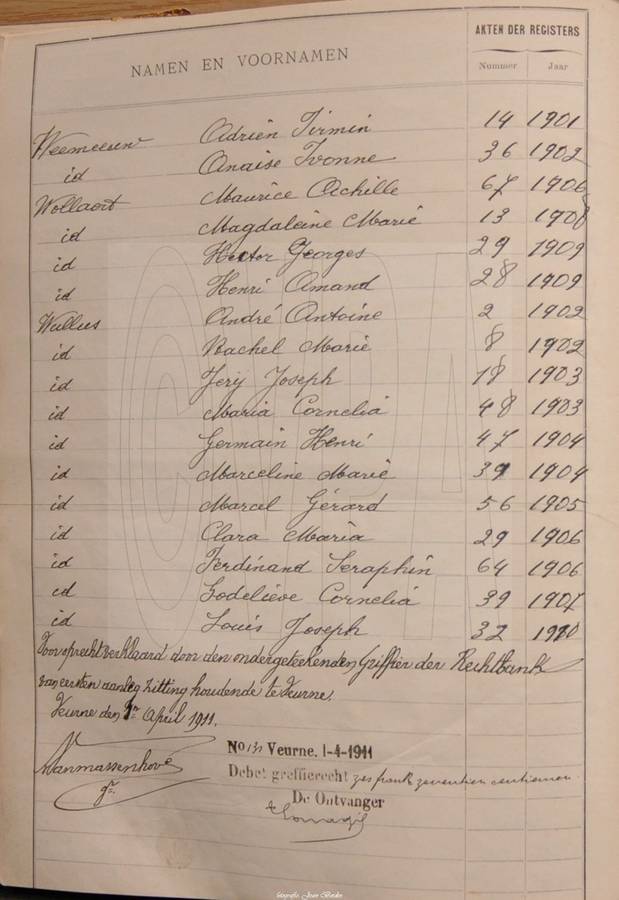 AKTEN DER REGISTERS
NAMEN EN VOORNAMEN
Nummer Jaar
Weemeeuw Adrien Firmin 14 1901
id Anaise Ivonne 36 1902
Wollaert Maurice Achille 67 1906
id Magdaleine Marie 13 1908
id Hector Georges 29 1909
id Henri Amand 28 1909
Wullus André Antoine 2 1902
id Rachel Marie 8 1902
id Jerij Joseph 18 1903
id Maria Cornelia 48 1903
id Germain Henri 47 1904
id Marceline Marie 39 1904
id Marcel Gérard 56 1905
id Clara Maria 29 1906
id Ferdinand Seraphin 64 1906
id Godelieve Cornelia 39 1907
id Louis Joseph 32 1910
Voor oprecht verklaard door den ondergeteekenden Griffier der Rechtbank
van eersten aanleg zitting houdende te Veurne.
Veurne den 1n April 1911.
Vanmassenhove
gr.
No 131 Veurne. 1-4-1911
Debet greffierecht zes frank zeventien centiemen
De Ontvanger